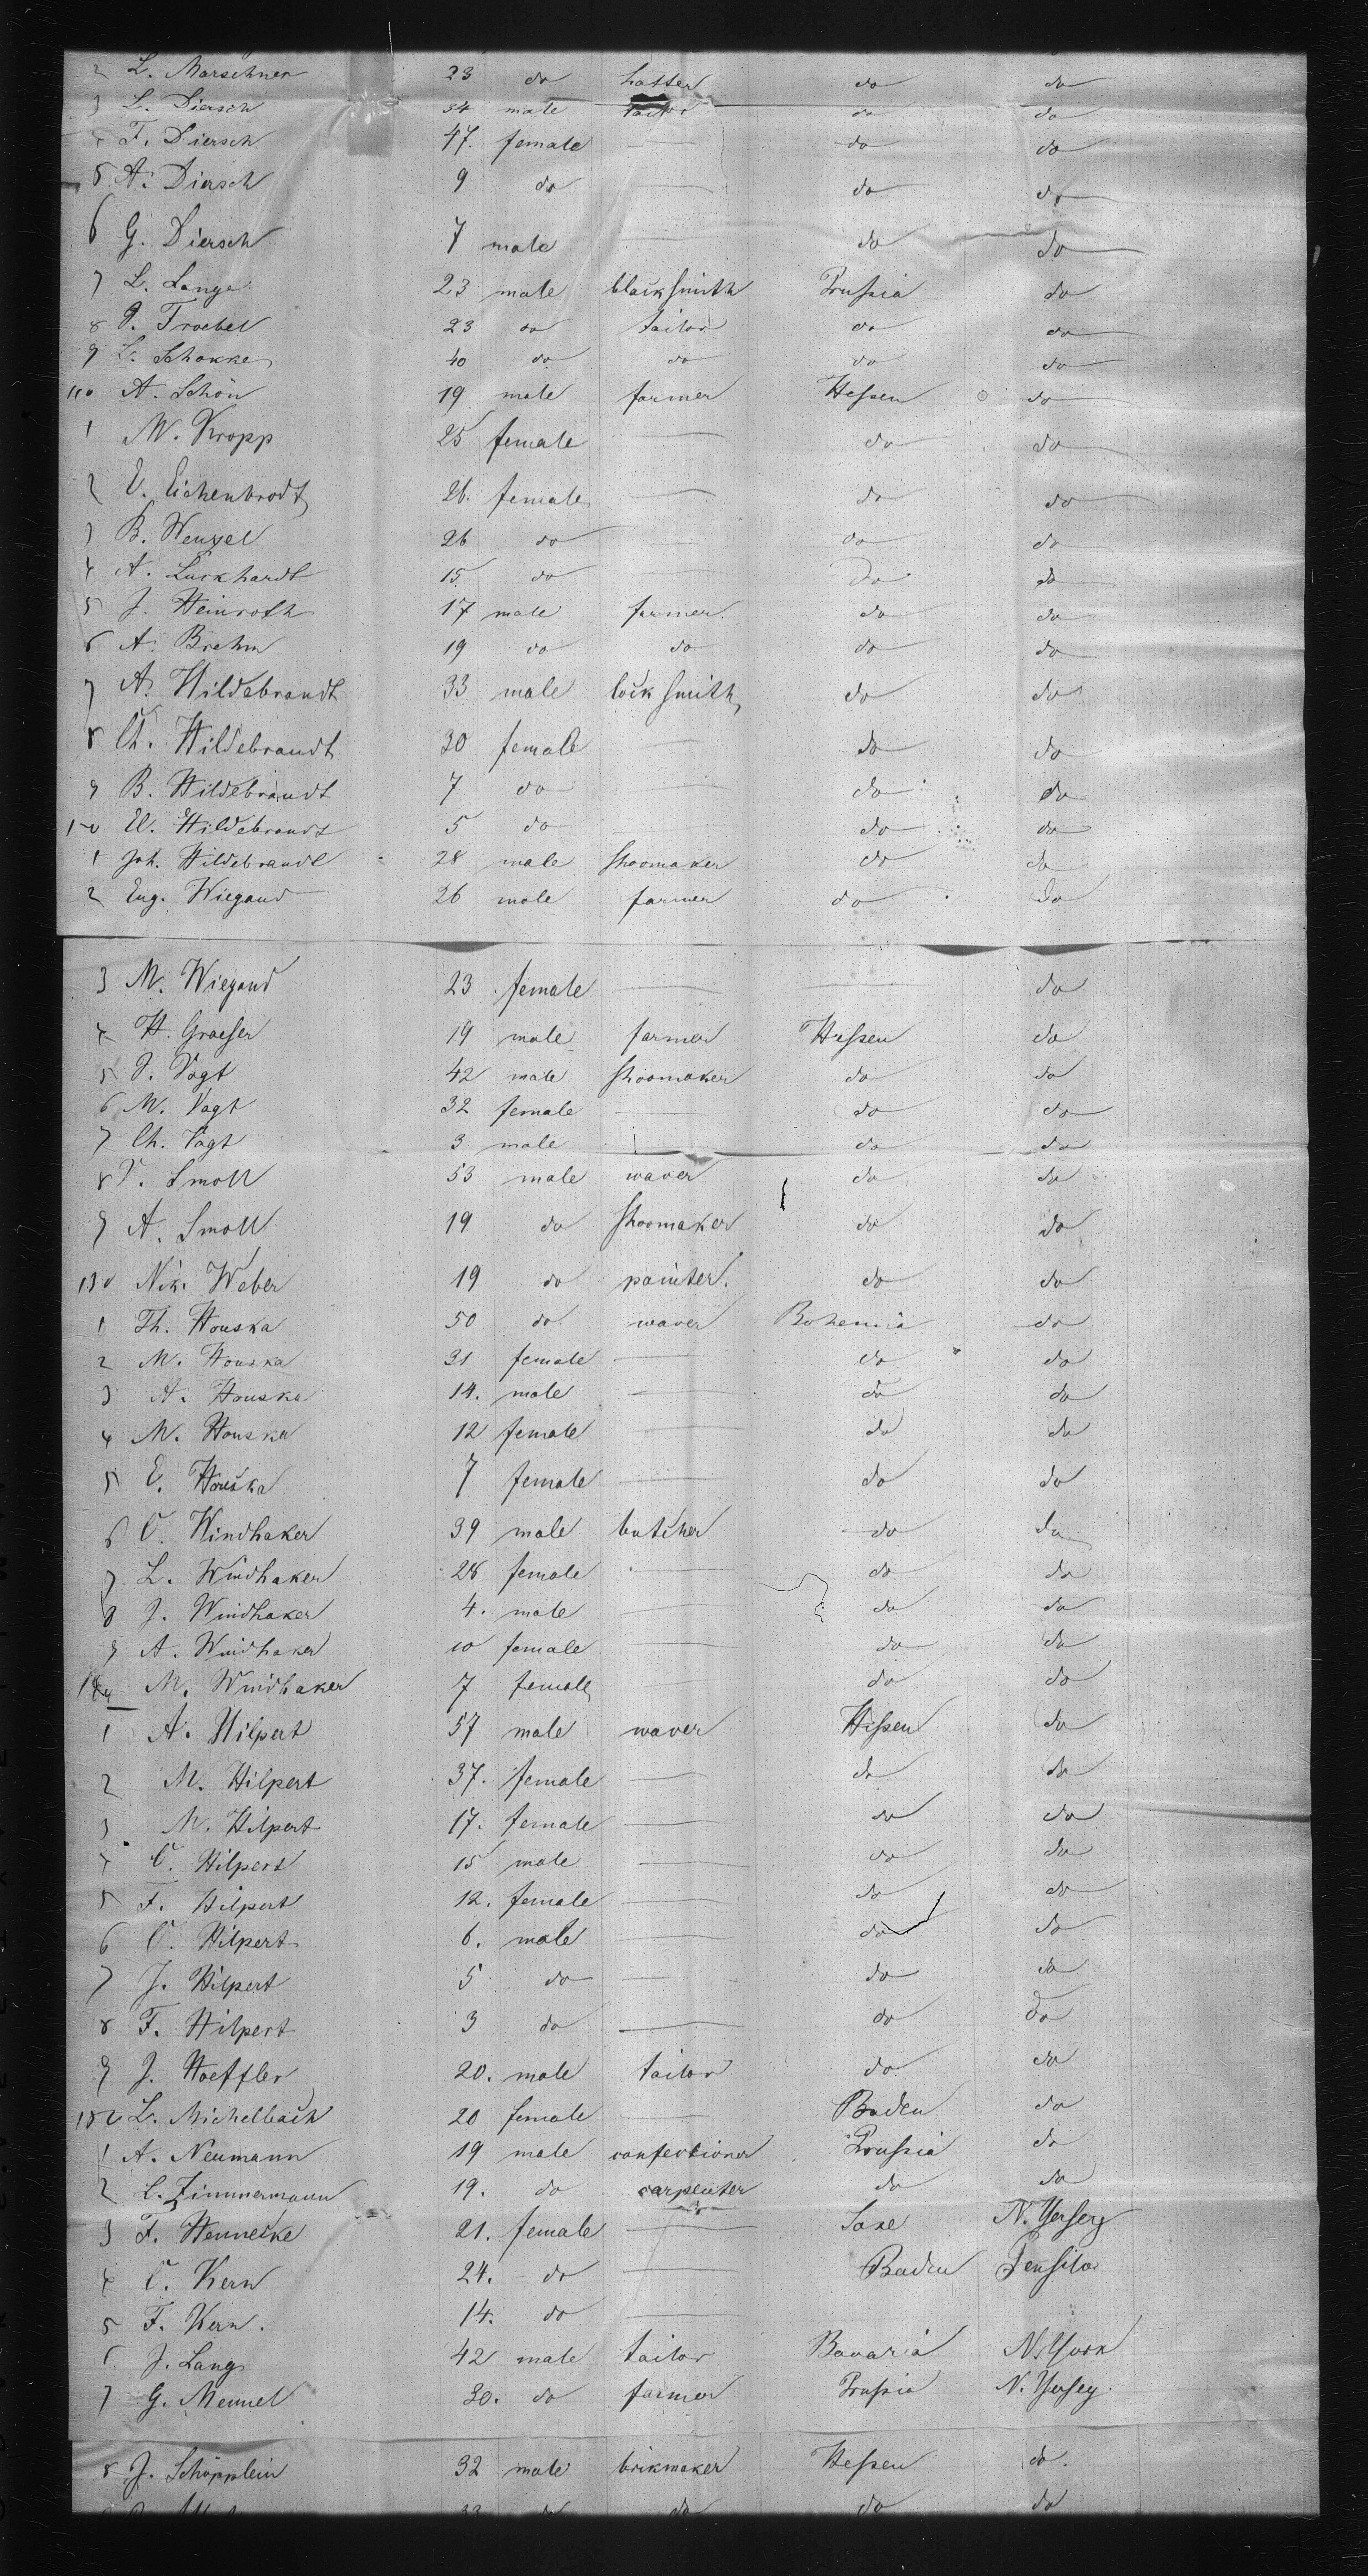 2 L. Marschner 23 do hatter do do
3 L. Diersch 34 male tailor do do
4 F. Diersch 47. female do do
5 A. Diersch 9 do do do
6 G. Diersch 7 male do do
7 L. Lange 23 male blacksmith Prussia do
8 Froebel 23 do tailor do do
9 L. Schokke 40 do do do do
110 A. Schön 19 male farmer Hessen do
1 M. Kropp 25 female do do
2 E. Eichenbrodt 26. female do do
3 B. Wenzel 26 do do do
4 A. Luckhardt 15 do do do
5 J. Heinroth 17 male farmer. do do
6 A. Brehm 19 do do do do
7 A. Hildebrandt 33 male lock smith do do
8 Ch. Hildebrandt 30 female do do
9 B. Hildebrandt 7 do do do
120 W. Hildebrandt 5 do do do
1 Joh. Hildebrandt 28 male shoomaker do do
2 Eug. Wiegand 26 male farmer do do
3 M. Wiegand 23 female do
4 H. Graeser 19 male farmer Hessen do
5 Vogt 42 male shoomaker do do
6 M. Vogt 32 female do do
7 Ch. Vogt 3 male do do
8 Smoll 53 male waver do do
9 A. Smoll 19 do shoomaker do do
130 Nik. Weber 19 do painter. do do
1 Th. Houska 50 do waver Bohemia do
2 M. Houska 31 female do do
3 A. Houska 14. male do do
4 M. Houska 12 female do do
5 E. Houska 7 female do do
6 C. Windhaker 39 male butcher do do
7 L. Windhaker 28 female do do
8 J. Windhaker 4. male do do
9 A. Windhaker 10 female do do
140 M. Windhaker 7 female do do
1 A. Hilpert 57 male waver Hessen do
2 M. Hilpert 37. female do do
3 M. Hilpert 17. female do do
4 C. Hilpert 15 male do do
5 F. Hilpert 12. female do do
6 C. Hilpert 6. male do do
7 J. Hilpert 5 do do do
8 F. Hilpert 3 do do do
9 J. Hoeffler 20. male tailor do do
L. Michelbach 20 female Baden do
1 A. Neumann 19 male confectioner Prussia do
2 L. Zimmermann 19. do carpenter do do
3 F. Hennecke 21. female Saxe N. Yersey
4 C. Kern 24. do Baden
5 F. Kern. 14. do
6 J. Lang 42 male tailor Bavaria N. York
7 G. Mennel 30. do farmer Prussia N. Yersey.
8 J. Schöpplein 32 male brikmaker Hessen do.
33 do do do do